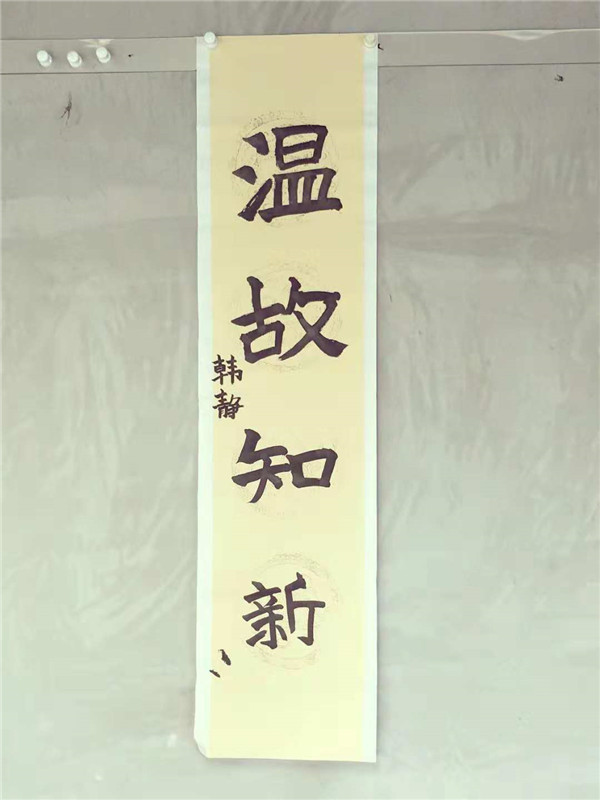 温故知新
韩静